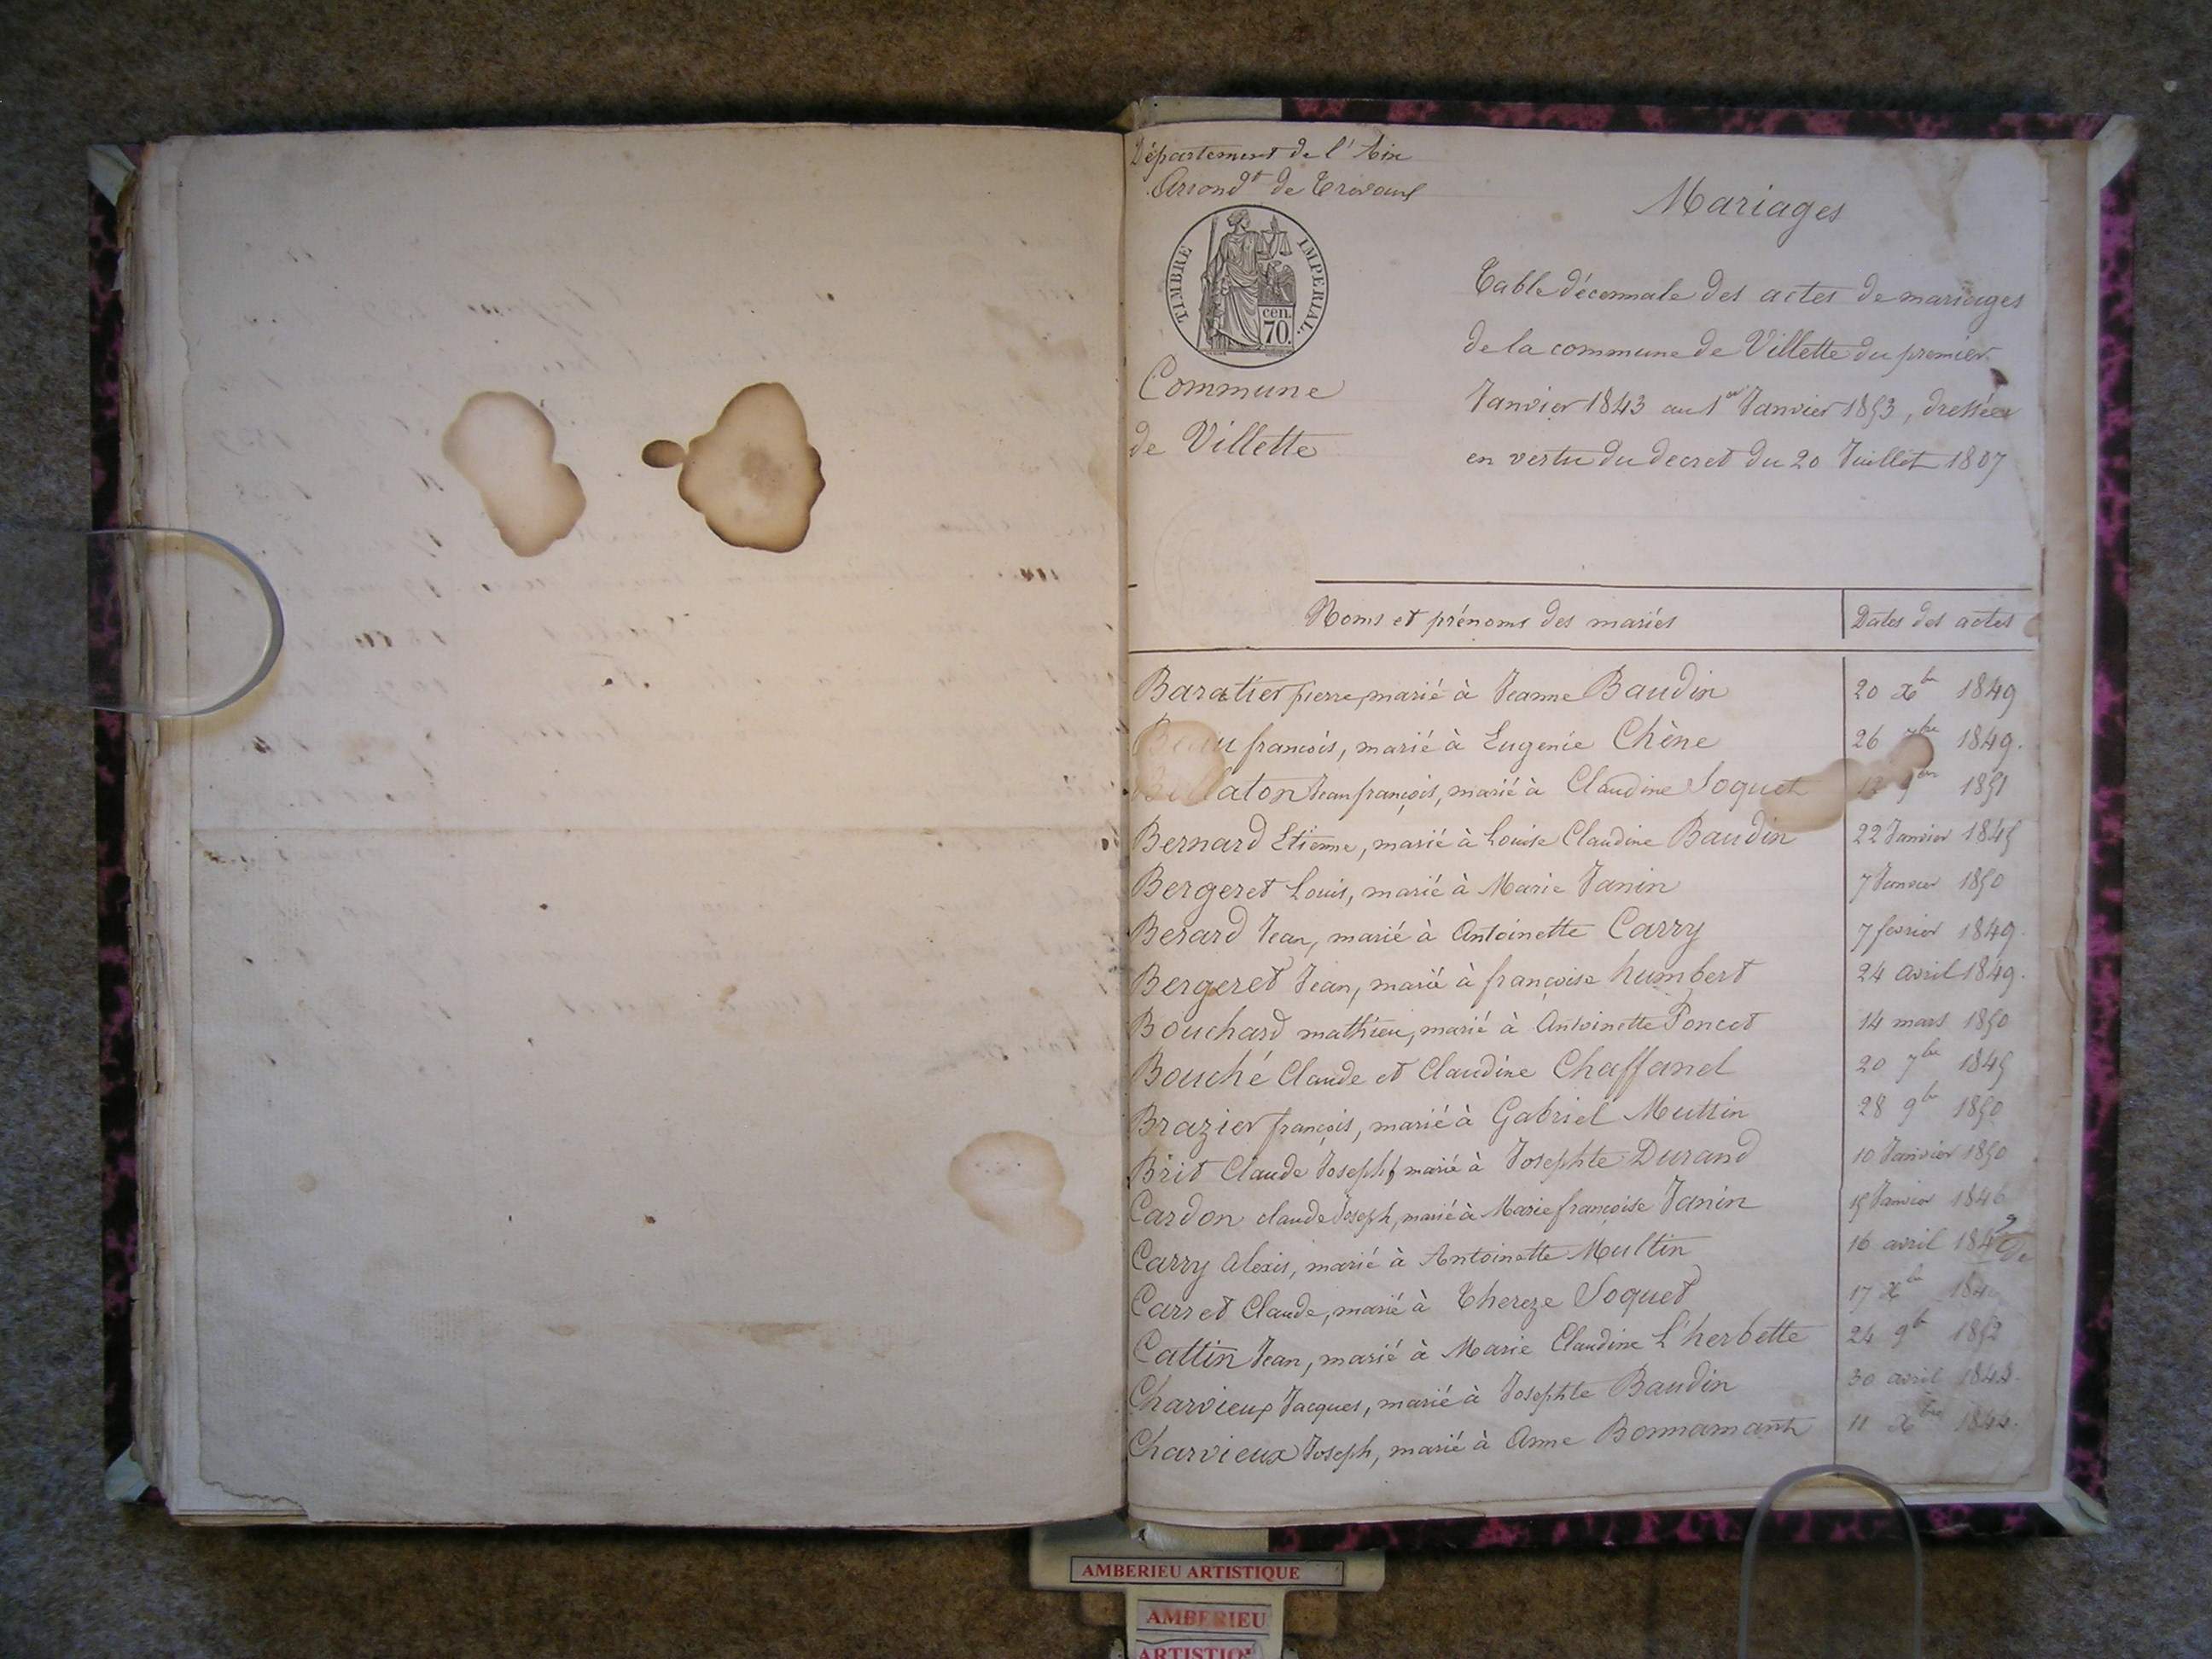 Département de l'Ain
Arrond^t de Trevoux
TIMBRE IMPERIAL.
cen.
70.
Commune
de Villette
Mariages
Table décennale des actes de mariages
de la commune de Villette du premier
Janvier 1843 au 1er Janvier 1853, dressée
en vertu du decret du 20 Juillet 1807
Noms et prénoms des mariés Dates des actes
Baratier pierre, marié à Jeanne Baudin 20 Xbre 1849
Beau francois, marié à Eugenie Chêne 26 7bre 1849.
Billaton Jean françois, marié à Claudine Soquet 1851
Bernard Etienne, marié à Louise Claudine Baudin 22 Janvier 1845
Bergeret Louis, marié à Marie Janin 7 Janvier 1850
Berard Jean, marié à Antoinette Carry 7 fevrier 1849.
Bergeret Jean, marié à françoise humbert 24 avril 1849.
Bouchard mathieu, marié à Antoinette Poncet 14 mars 1850
Bouché Claude et Claudine Chaffanel 20 7bre 1845
Brazier françois, marié à Gabriel Muttin 28 9bre 1850
Brit Claude Joseph marié à Josephte Durand 10 Janvier 1850
Cardon claude Joseph, marié à Marie françoise Janin 15 Janvier 1846
Carry Alexis, marié à Antoinette Multin 16 avril
Carret Claude, marié à Thereze Soquet 17 Xbre
Cattin Jean, marié à Marie Claudine L'herbette 24 9bre 1852
Charvieux Jacques, marié à Josephte Baudin 30 avril
Charvieux Joseph, marié à Anne Bonnamant 11 Xbre 1844.
AMBERIEU ARTISTIQUE
AMBERIEU